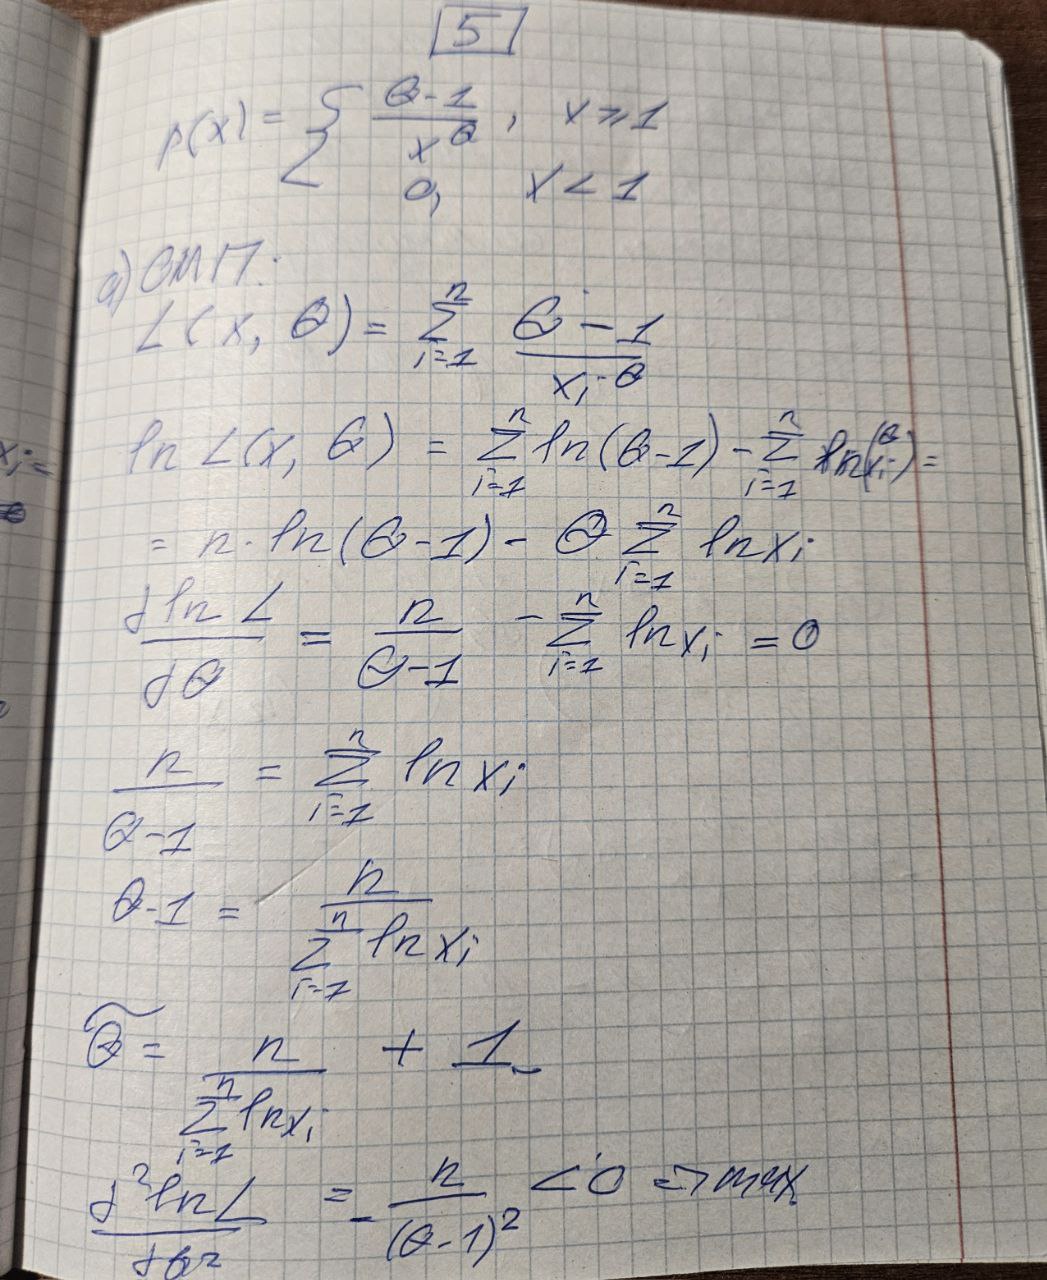 5
p(x) = { (θ-1)/x^θ, x ≥ 1
0, x < 1
а) ОМП.
L(x, θ) = Σ_{i=1}^{n} (θ-1)/x_i^θ
ln L(x, θ) = Σ_{i=1}^{n} ln(θ-1) - Σ_{i=1}^{n} ln(x_i^θ) =
= n·ln(θ-1) - θ Σ_{i=1}^{n} ln x_i
∂ln L/∂θ = n/(θ-1) - Σ_{i=1}^{n} ln x_i = 0
n/(θ-1) = Σ_{i=1}^{n} ln x_i
θ-1 = n/(Σ_{i=1}^{n} ln x_i)
θ̃ = n/(Σ_{i=1}^{n} ln x_i) + 1
∂²ln L/∂θ² = -n/(θ-1)² < 0 => max